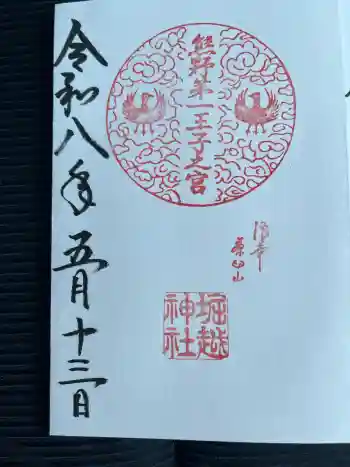 浪華
茶臼山
熊野第一王子之宮
堀越
神社
令和八年五月十三日